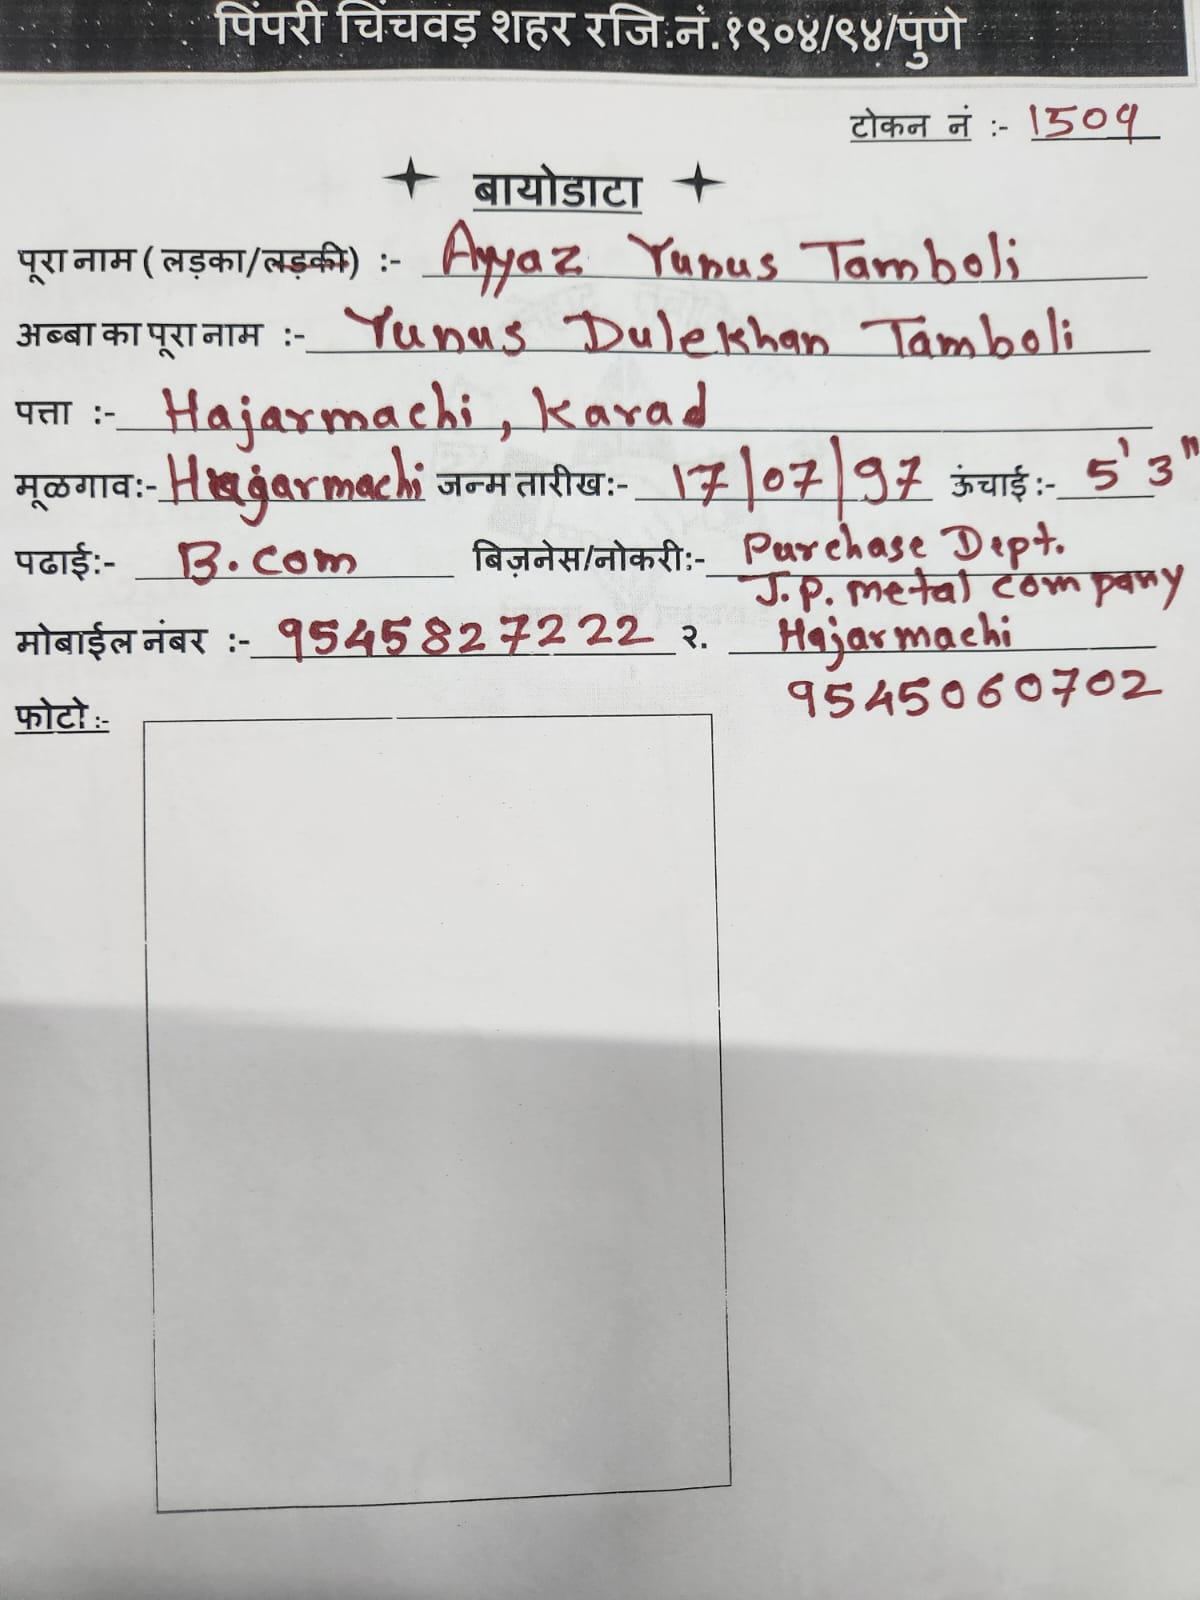 पिंपरी चिंचवड़ शहर रजि.नं.१९०४/९४/पुणे
टोकन नं :- 1509
बायोडाटा
पूरा नाम ( लड़का/लड़की) :- Ayyaz Yunus Tamboli
अब्बा का पूरा नाम :- Yunus Dulekhan Tamboli
पत्ता :- Hajarmachi, Karad
मूळगाव:- Hajarmachi जन्म तारीख:- 17/07/97 ऊंचाई :- 5' 3"
पढाई:- B.com बिज़नेस/नोकरी:- Purchase Dept.
J.P. metal company
मोबाईल नंबर :- 9545827222 २. Hajarmachi
9545060702
फोटो :-